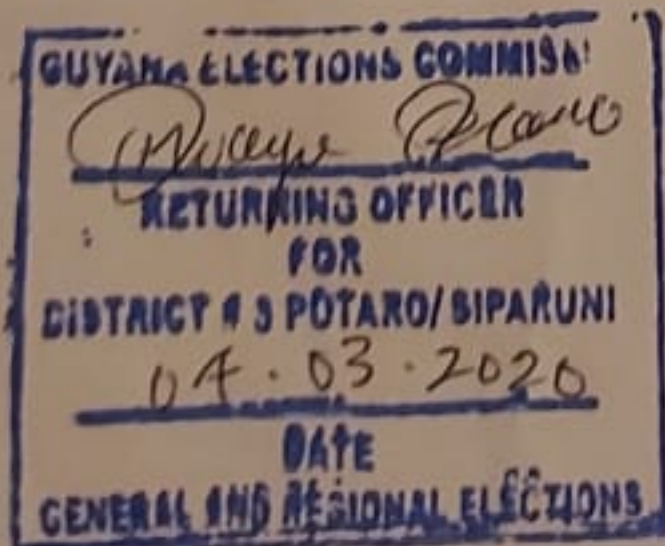 GUYANA ELECTIONS COMMISS
RETURNING OFFICER
FOR
DISTRICT # 8 POTARO/SIPARUNI
04.03.2020
DATE
GENERAL AND REGIONAL ELECTIONS